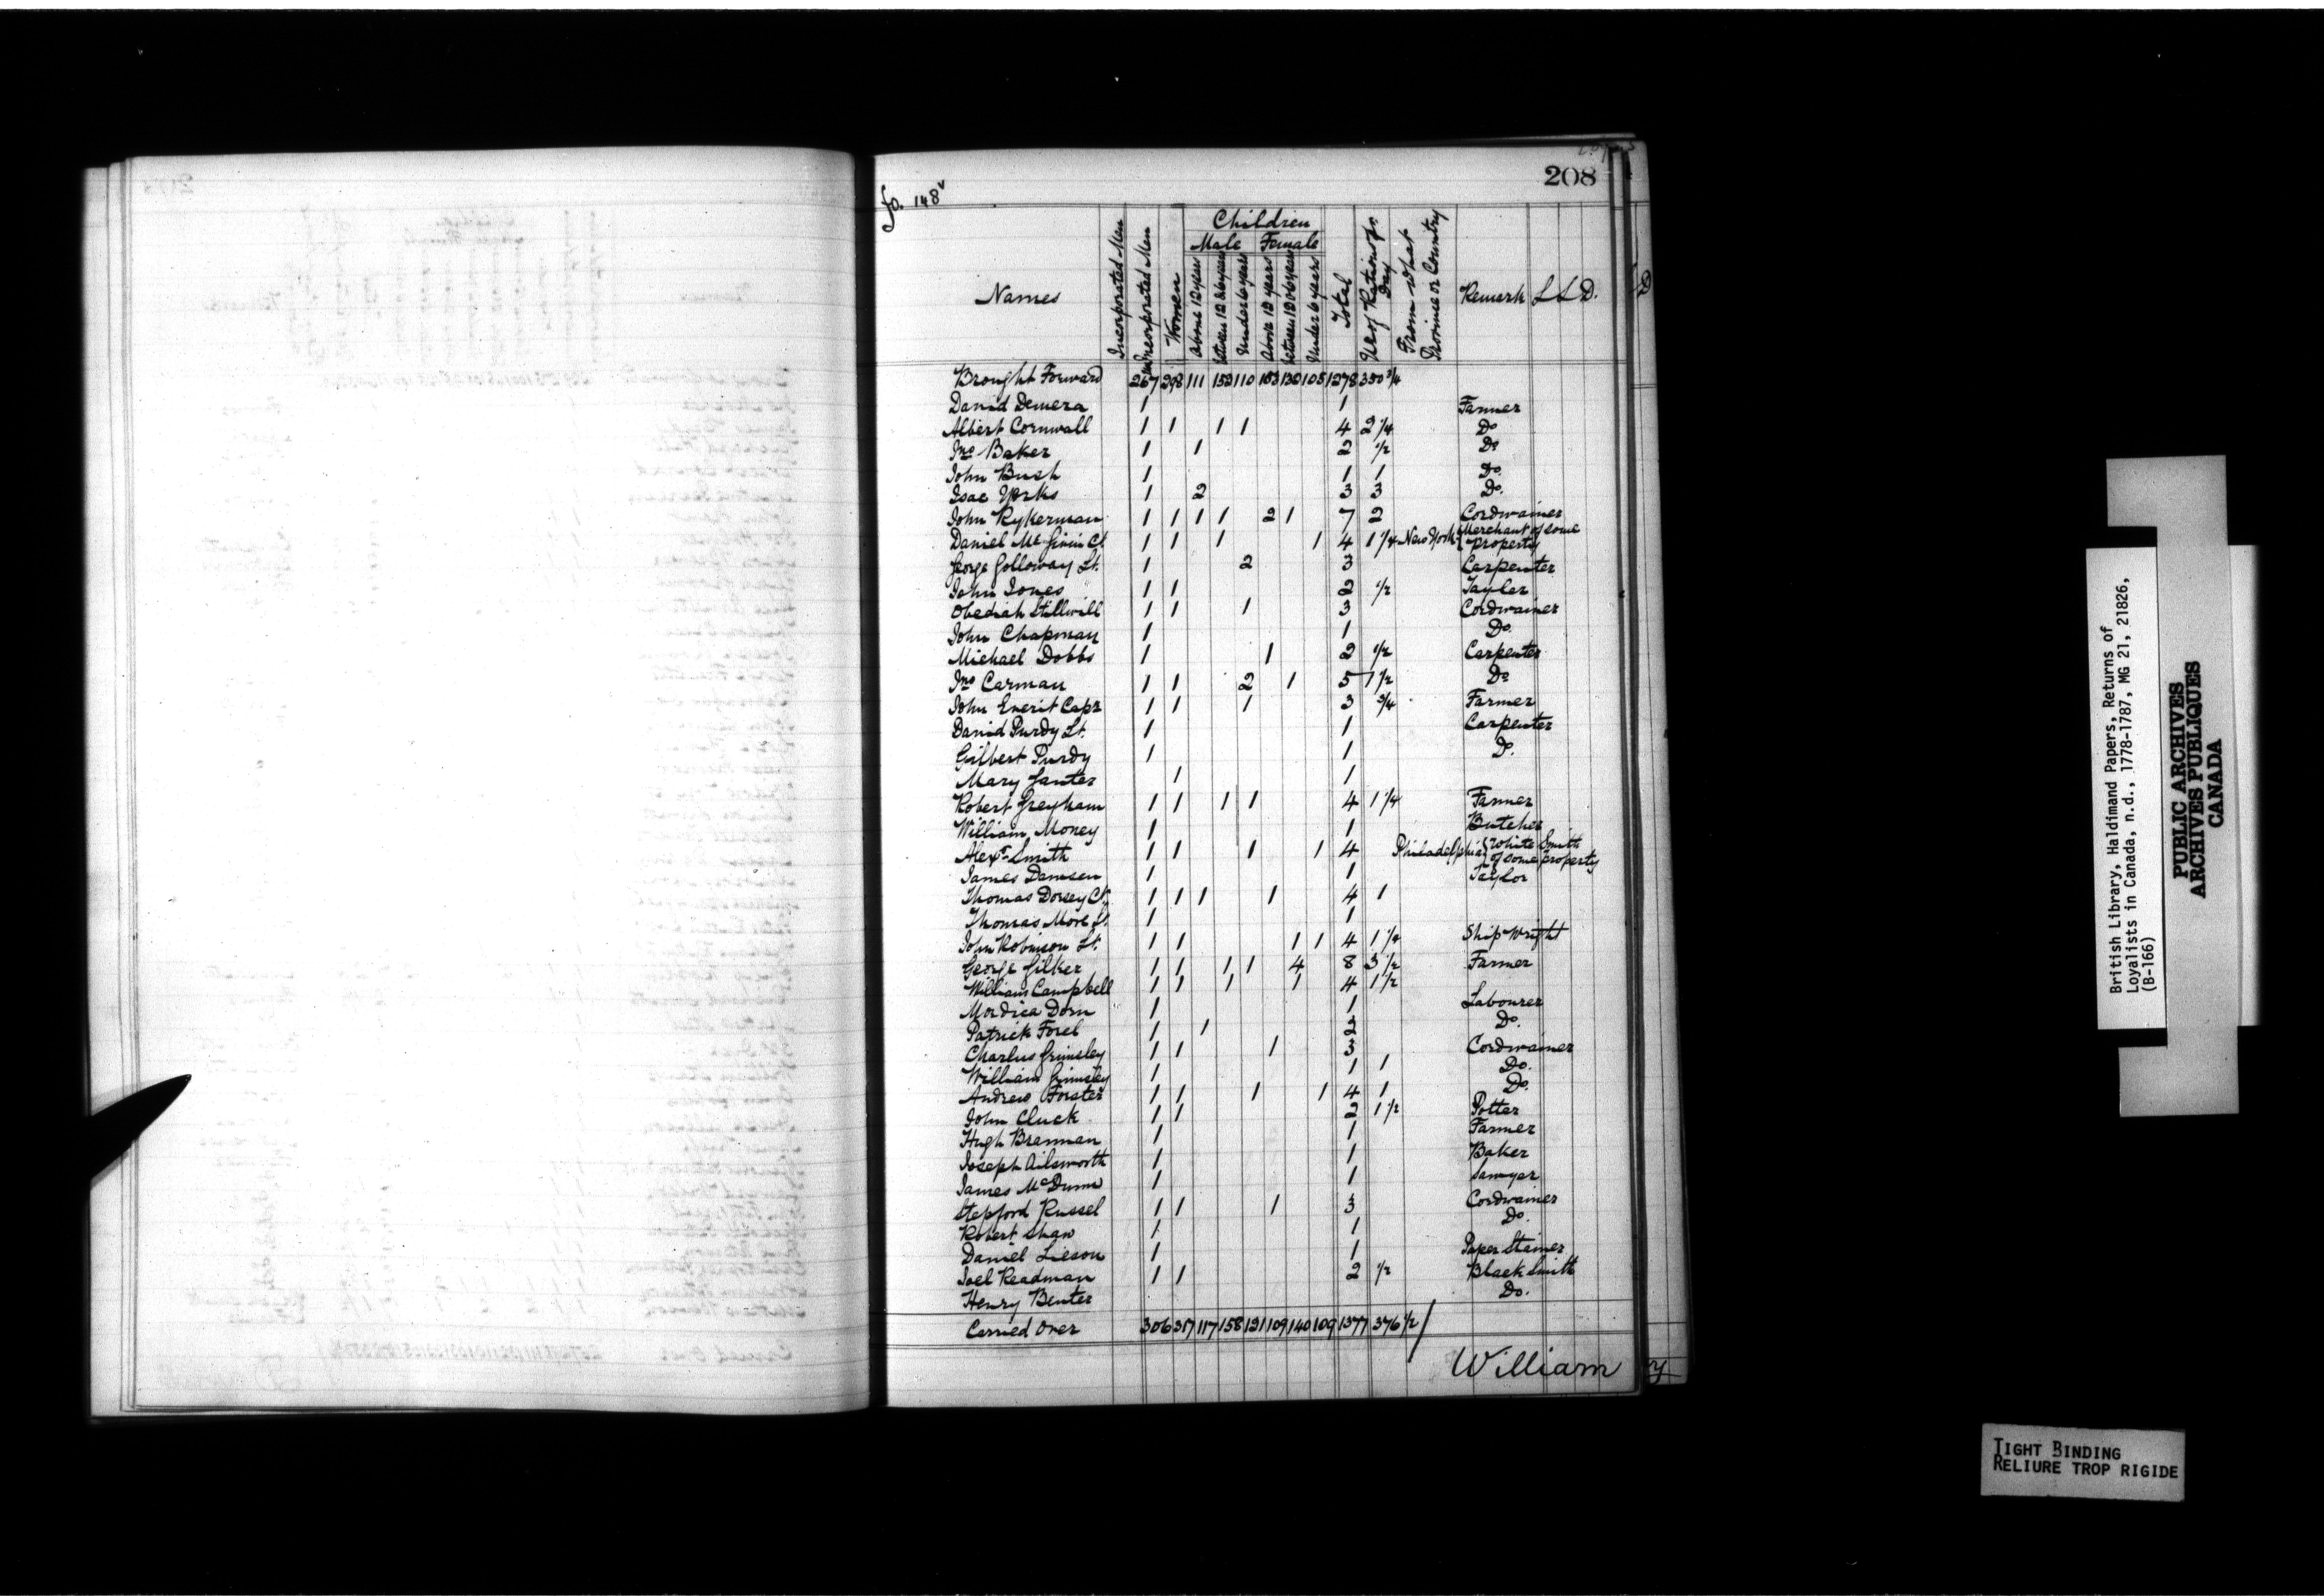 208
fo. 148v
Names
Incorporated Men
Unincorporated Men
Women
Children
Male Female
above 12 years
between 12 & 6 years
Under 6 years
Above 12 years
between 12 & 6 years
Under 6 years
Total
No of Rations pr Day
From What Province or Country
Remark L L D.
Brought Forward 267 298 111 152 110 103 132 105 1278 350 3/4
David Demera 1 1 Farmer
Albert Cornwall 1 1 1 1 4 2 1/4 Do
Jno Baker 1 1 2 1/2 Do
John Bush 1 1 1 Do.
Isac Yorks 1 2 3 3 Do.
John Rykerman 1 1 1 1 2 1 7 2 Cordwainer
Daniel Mc Girin Ct. 1 1 1 1 4 1 1/4 New York { Merchant of some property
George Golloway Lt. 1 2 3 Carpenter
John Jones 1 1 2 1/2 Tayler
Obediah Stillwill 1 1 1 3 Cordwainer
John Chapman 1 1 Do.
Michael Dobbs 1 1 2 1/2 Carpenter
Jno Carman 1 1 2 1 5 1 1/2 Do
John Everit Capt 1 1 1 3 3/4 Farmer
David Purdy Lt. 1 1 Carpenter
Gilbert Purdy 1 1 Do.
Mary Ganter 1 1
Robert Greyham 1 1 1 1 4 1 1/4 Farmer
William Money 1 1 Butcher
Alexr Smith 1 1 1 1 4 Philadelphia { White Smith of some property
James Damsen 1 1 Taylor
Thomas Dorsey Ct. 1 1 1 1 4 1
Thomas More Lt. 1 1
John Robinson Lt. 1 1 1 1 4 1 1/4 Ship Wright
George Gilker 1 1 1 1 4 8 3 1/2 Farmer
William Campbell 1 1 1 1 4 1 1/2
Mordica Dorn 1 1 Labourer
Patrick Forel 1 1 2 Do.
Charlus Grimsley 1 1 1 3 Cordwainer
William Grimsley 1 1 1 Do.
Andrew Forster 1 1 1 1 4 1 Do.
John Cluck 1 1 2 1 1/2 Potter
Hugh Brannan 1 1 Farmer
Joseph Ailsworth 1 1 Baker
James McDunn 1 1 Sawyer
Stepford Russel 1 1 1 3 Cordwainer
Robert Shaw 1 1 Do.
Daniel Lieson 1 1 Paper Stainer
Joel Readman 1 1 2 1/2 Black Smith
Henry Benter Do.
Carried Over 306 317 117 158 121 109 140 109 1377 376 1/2
William
British Library, Haldimand Papers, Returns of
Loyalists in Canada, n.d., 1778-1787, MG 21, 21826,
(B-166)
PUBLIC ARCHIVES
ARCHIVES PUBLIQUES
CANADA
TIGHT BINDING
RELIURE TROP RIGIDE